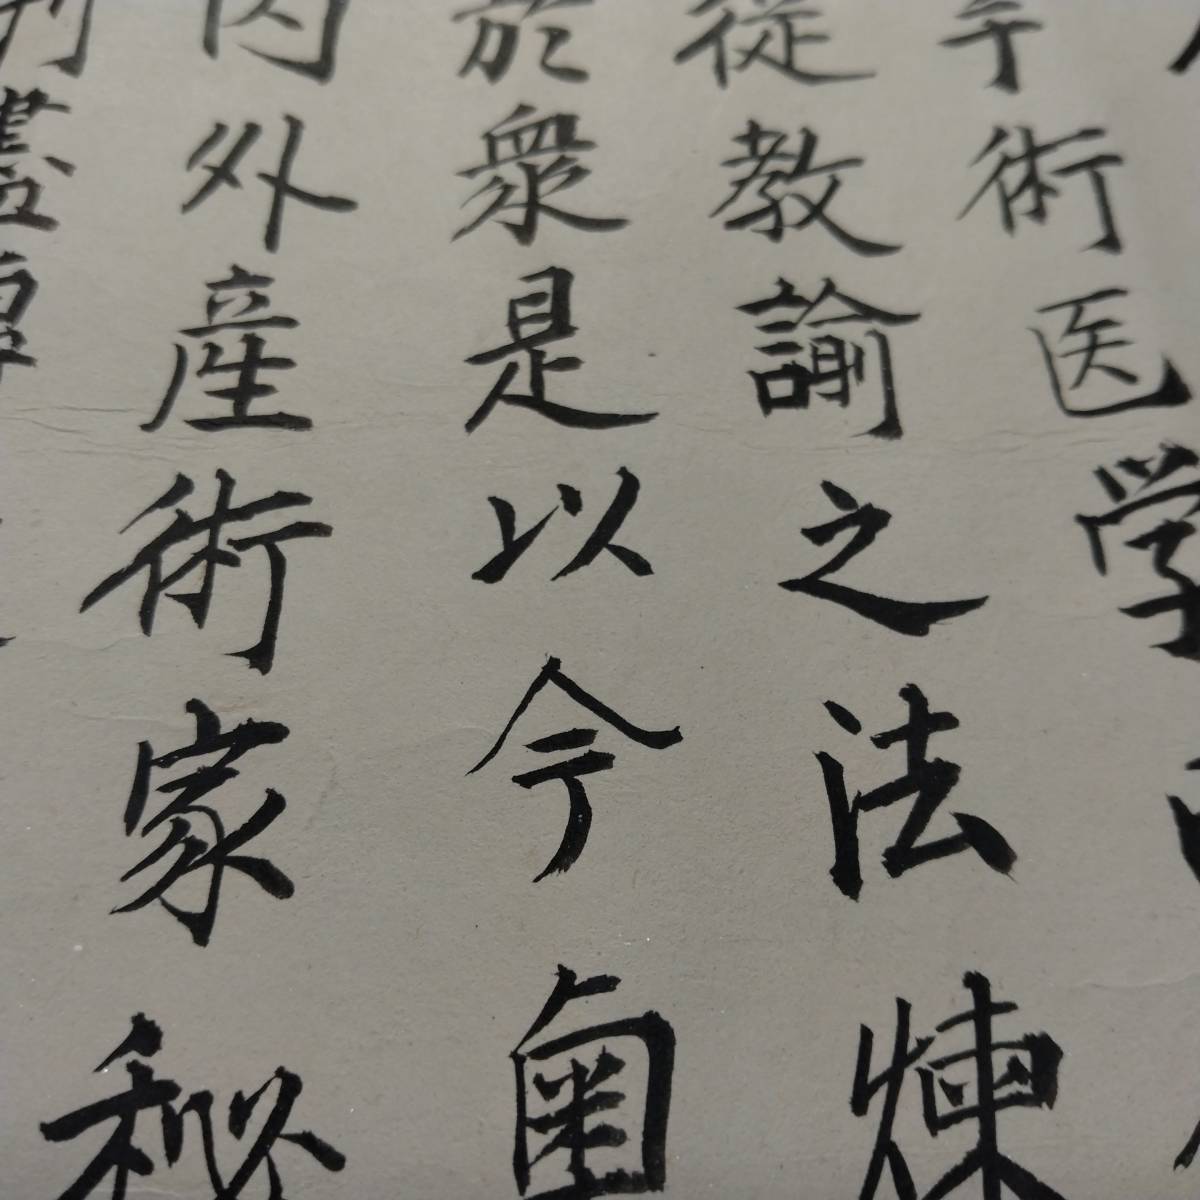 術医学
従教諭之法煉
於衆是以今奥
内外産術家秘
盡